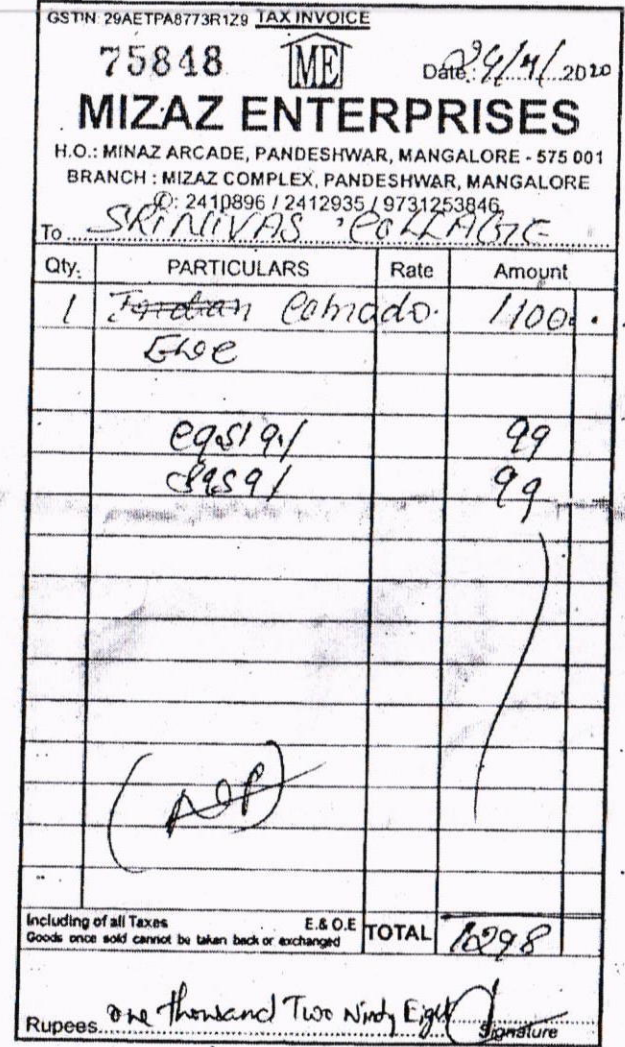 GSTIN: 29AETPA8773R1Z9 TAX INVOICE
75848 ME Date: 2020
MIZAZ ENTERPRISES
H.O.: MINAZ ARCADE, PANDESHWAR, MANGALORE - 575 001
BRANCH : MIZAZ COMPLEX, PANDESHWAR, MANGALORE
✆: 2410896 / 2412935 / 9731253846
To SRINIVAS COLLAGE
Qty. PARTICULARS Rate Amount
1 1100
99
99
Including of all Taxes E.& O.E TOTAL 1298
Goods once sold cannot be taken back or exchanged
Rupees one thousand Two Nindy Eight Signature